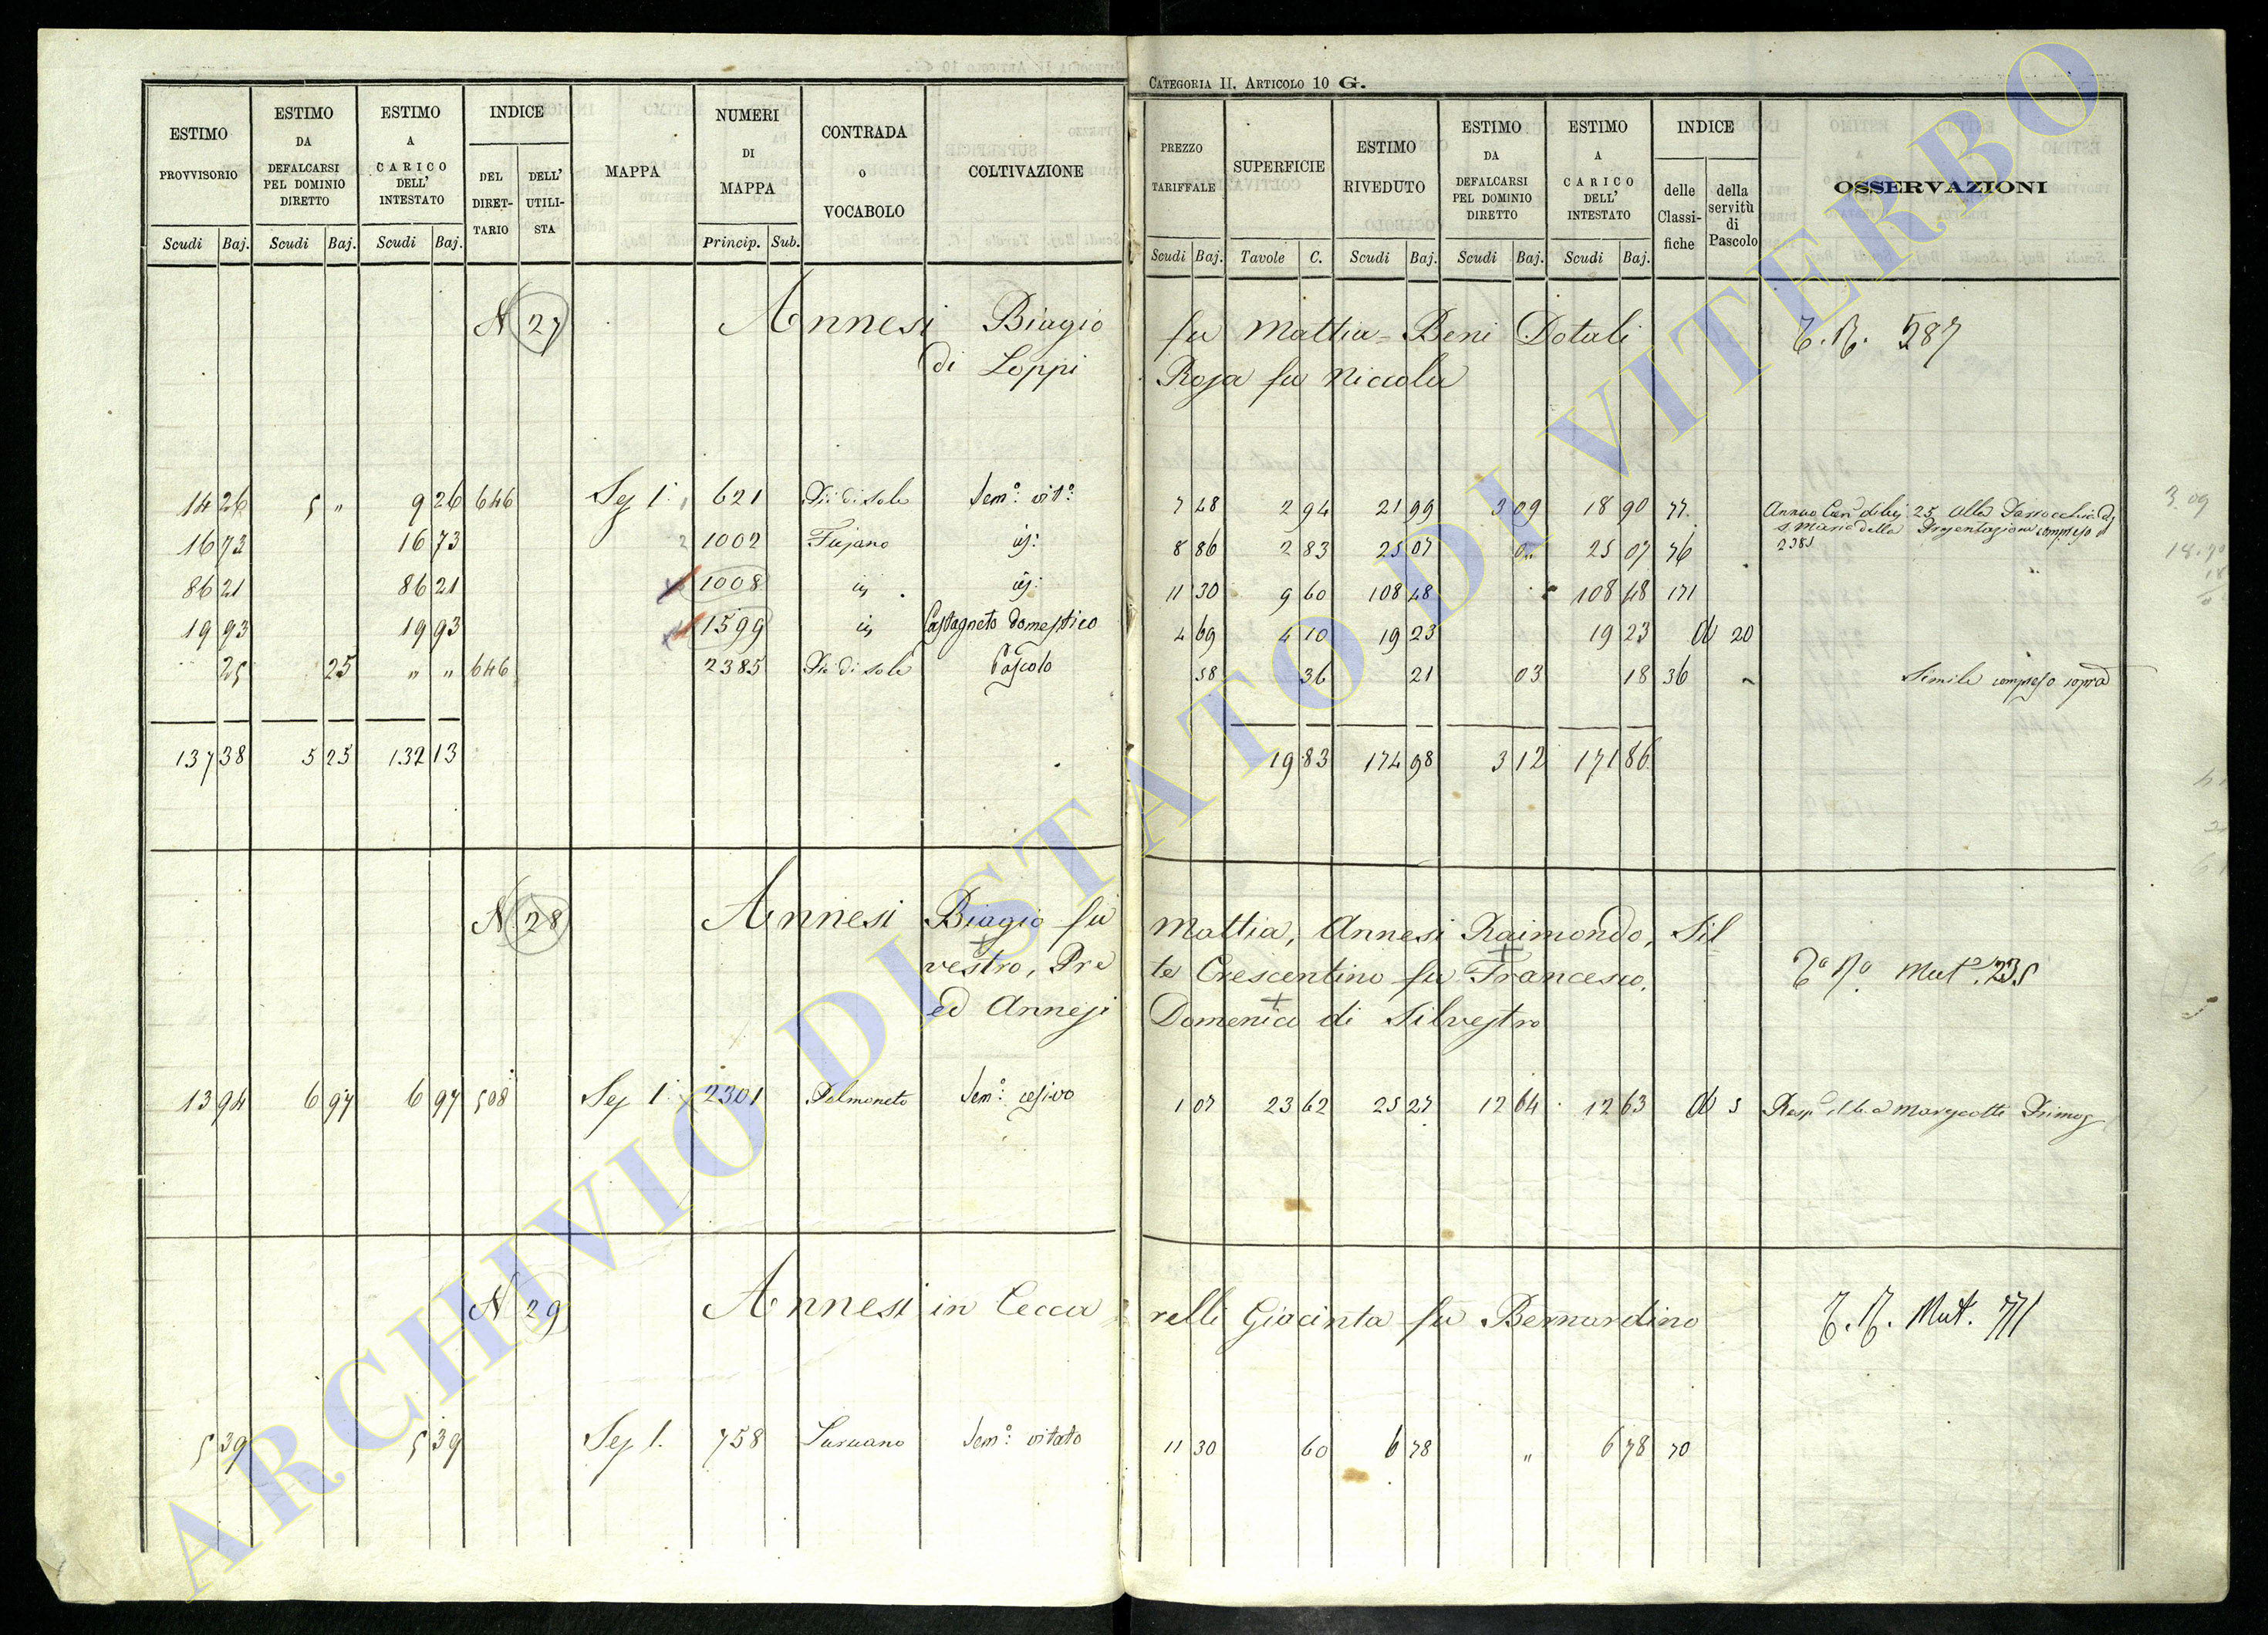 CATEGORIA II. ARTICOLO 10 G.
ESTIMO PROVVISORIO Scudi Baj.
ESTIMO DA DEFALCARSI PEL DOMINIO DIRETTO Scudi Baj.
ESTIMO A CARICO DELL' INTESTATO Scudi Baj.
INDICE DEL DIRETTARIO DELL' UTILISTA
MAPPA
NUMERI DI MAPPA Princip. Sub.
CONTRADA O VOCABOLO
COLTIVAZIONE
PREZZO TARIFFALE Scudi Baj.
SUPERFICIE Tavole C.
ESTIMO RIVEDUTO Scudi Baj.
ESTIMO DA DEFALCARSI PEL DOMINIO DIRETTO Scudi Baj.
ESTIMO A CARICO DELL' INTESTATO Scudi Baj.
INDICE delle Classifiche della servitù di Pascolo
OSSERVAZIONI
N 27 Annesi Biagio fu Mattia = Beni Dotali T. N. 587
di Loppi Rosa fu Niccola
14 26 5 " 9 26 646 Sez 1. 621 Piè di sole Sem.º vit.º 7 48 2 94 21 99 3 09 18 90 77. Annuo Can di bij 25 alla Parrocchia di
S. Maria della Presentazione compreso il
2385
16 73 16 73 2 1002 id: 8 86 2 83 25 07 25 07 76
86 21 86 21 1008 id id: 11 30 9 60 108 48 108 48 171
19 93 19 93 1599 id Castagneto domestico 4 69 4 10 19 23 19 23 20
25 25 " " 646 2385 Piè di sole Pascolo 58 36 21 03 18 36 Simile compreso sopra
137 38 5 25 132 13 19 83 174 98 3 12 171 86
N. 28 Annesi Biagio fu Mattia, Annesi Raimondo, Sil
vestro, Pre te Crescentino fu Francesco, Mut. 235
ed Annesi Domenica di Silvestro
13 94 6 97 6 97 508 Sez 1. 2301 Palmoneto Sem.º cesivo 1 07 23 62 25 27 12 64 12 63 5
N 29 Annesi in Cecca relli Giacinta fu Bernardino T. N. Mut. 771
5 39 5 39 Sez 1. 758 Sem.º vitato 11 30 60 6 78 " 6 78 70
3 09
ARCHIVIO DI STATO DI VITERBO